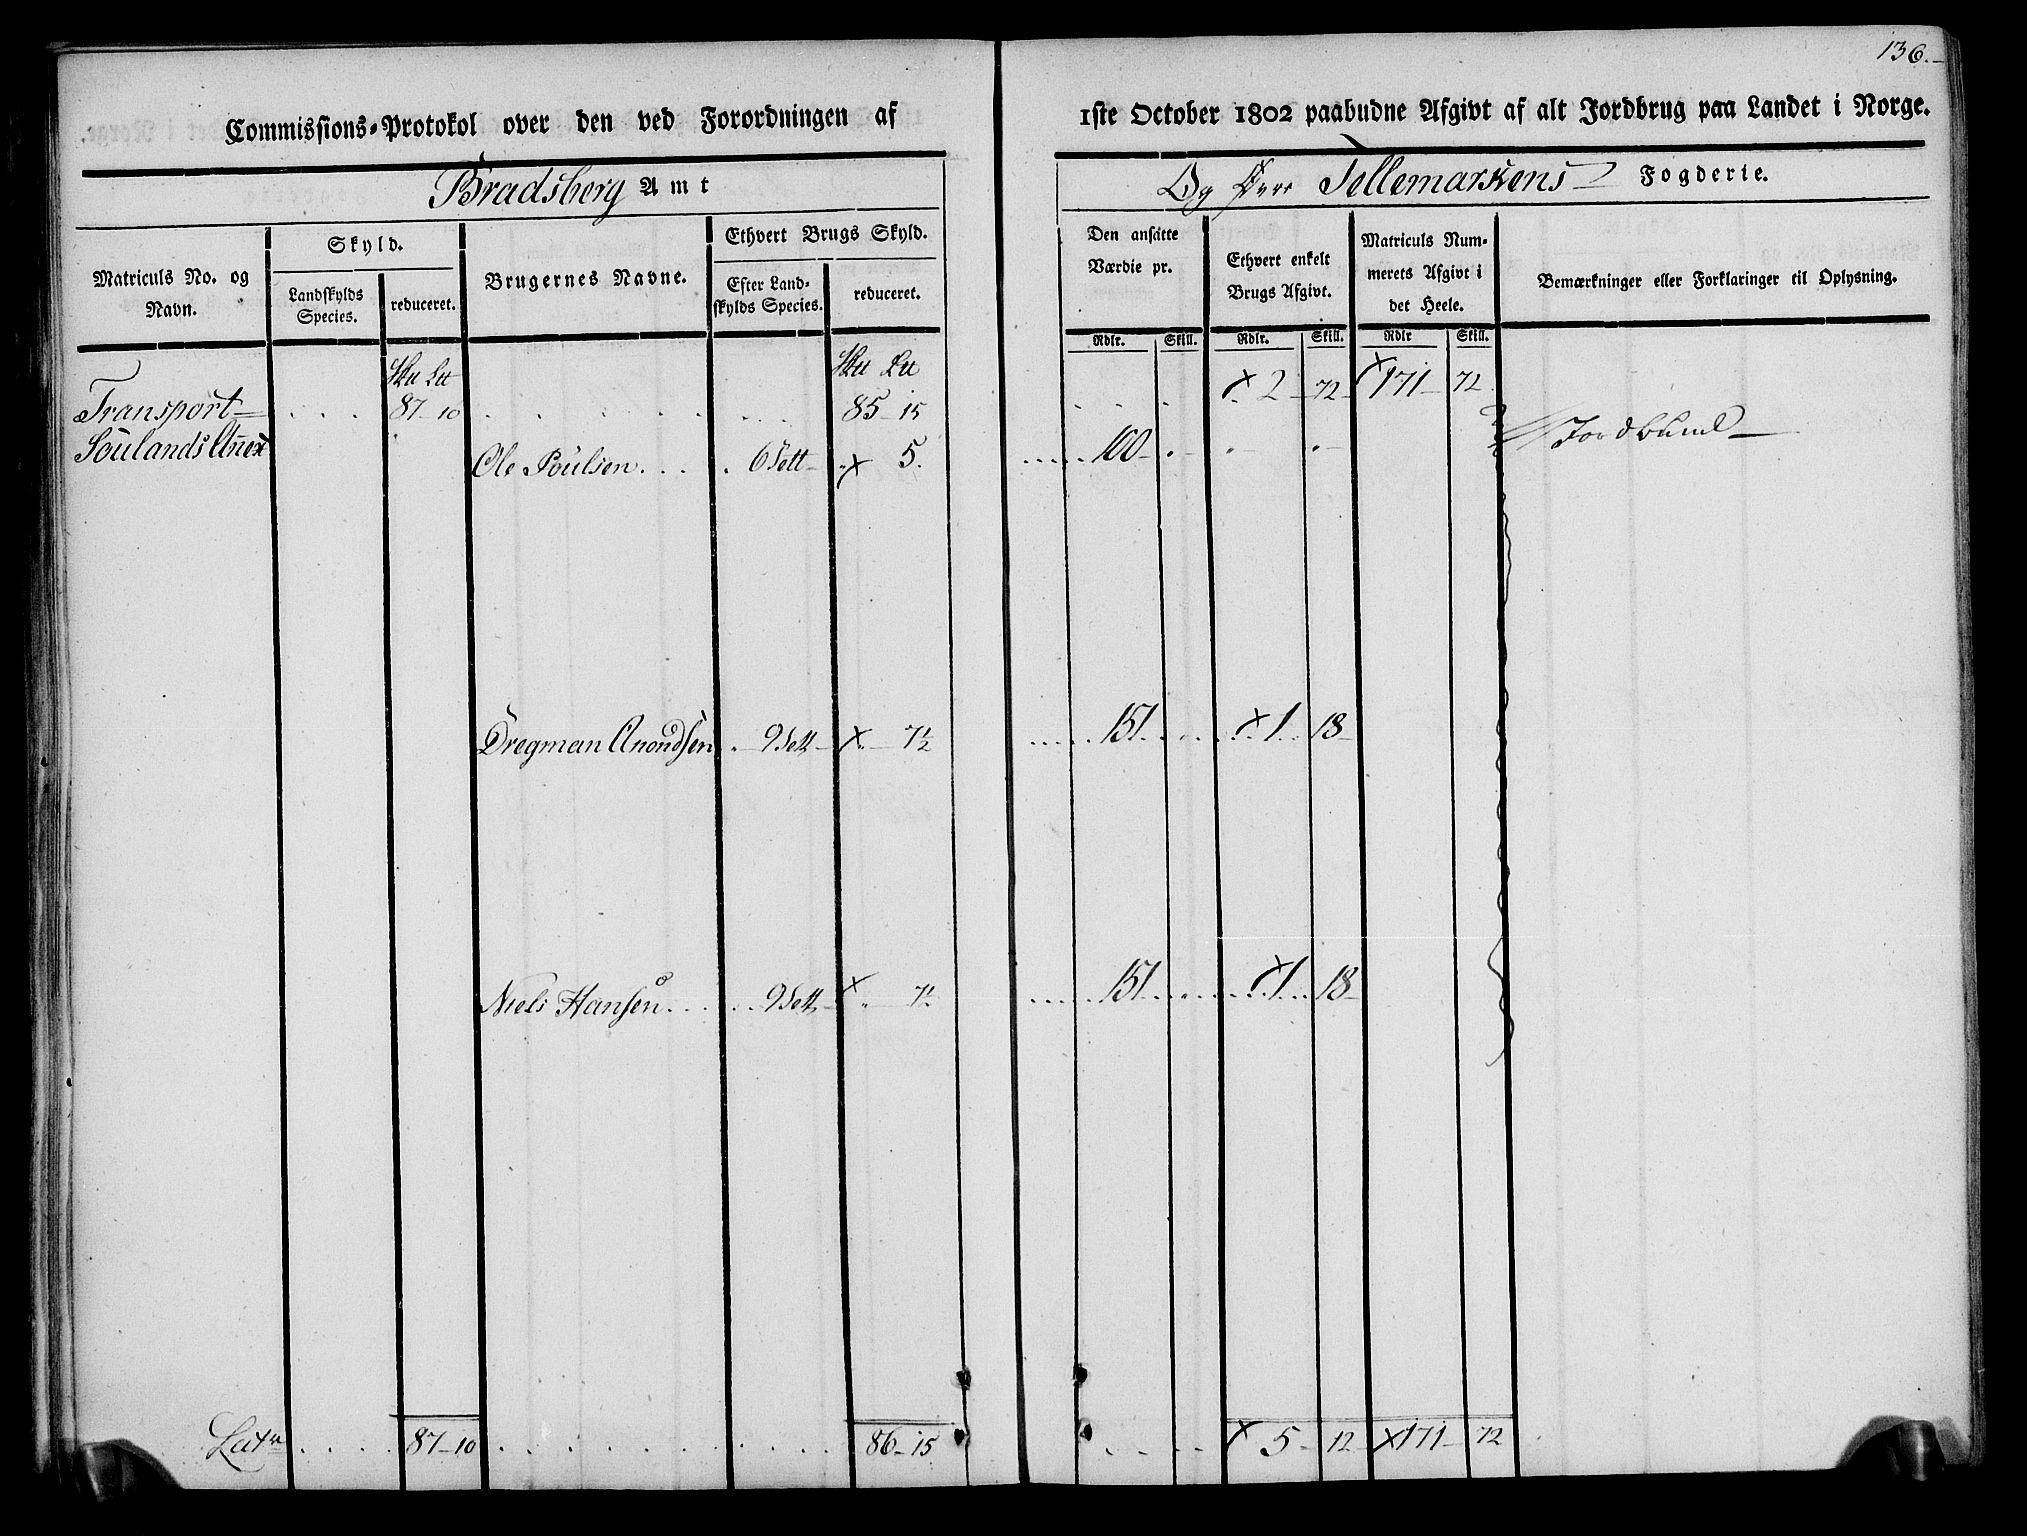 136.
Commissions-Protokol over den ved Forordningen af 1ste October 1802 paabudne Afgivt af alt Jordbrug paa Landet i Norge.
Bradsberg Amt
Og Øvre Tellemarkens Fogderie.
Matriculs No. og Navn.
Skyld.
Landskylds Species.
reduceret.
Brugernes Navne.
Ethvert Brugs Skyld.
Efter Landskylds Species.
reduceret.
Den ansatte Værdie pr.
Ethvert enkelt Brugs Afgivt.
Matriculs Nummerets Afgivt i det Heele.
Bemærkninger eller Forklaringer til Oplysning.
Rdlr. Skill. Rdlr. Skill. Rdlr Skill.
Transport 87 10 85 15 2 72 171 72
Soulands Anex
Ole Poulsen 6 Sett 5. 100
Dregman Anondsen 9 Sett 7½ 151 1 18
Niels Hansen 9 Sett 7½ 151 1 18
Latr 87 10 86 15 5 12 171 72